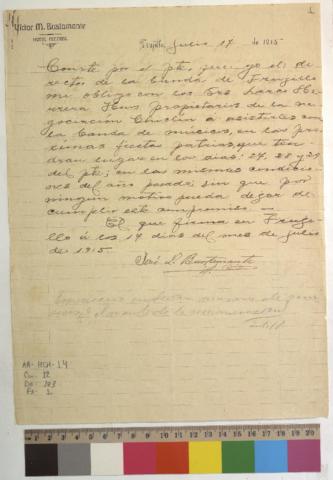 Victor M. Bustamante
HOTEL
Trujillo, Julio 17 de 1915
Conste por el pte, que yo el di-
rector de la banda de Trujillo
me obligo con los Srs Larco He-
rrera Hnos propietarios de la ne-
gociación Chiclín á asistirles con
la banda de músicos, en las pró-
ximas fiestas patrias, que ten-
dran lugar en los dias: 27, 28 y 29
del pte; en las mismas condicio-
nes del año pasado; sin que por
ningún motivo pueda dejar de
cumplir este compromiso.
El que firma en Truji-
llo á los 17 dias del mes de julio
de 1915.
José D. Bustamante
AA-HCH-1.4
Ca: 12
Do: 303
Fs: 1
1 2 3 4 5 6 7 8 9 10 11 12 13 14 15 16 17 18 19 20